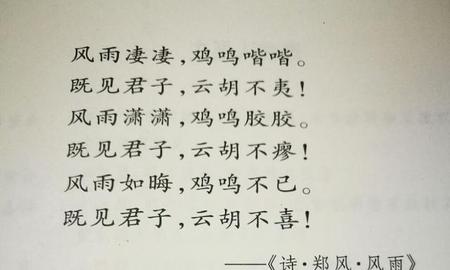 风雨凄凄,鸡鸣喈喈。
既见君子,云胡不夷!
风雨潇潇,鸡鸣胶胶。
既见君子,云胡不瘳!
风雨如晦,鸡鸣不已。
既见君子,云胡不喜!
——《诗·郑风·风雨》